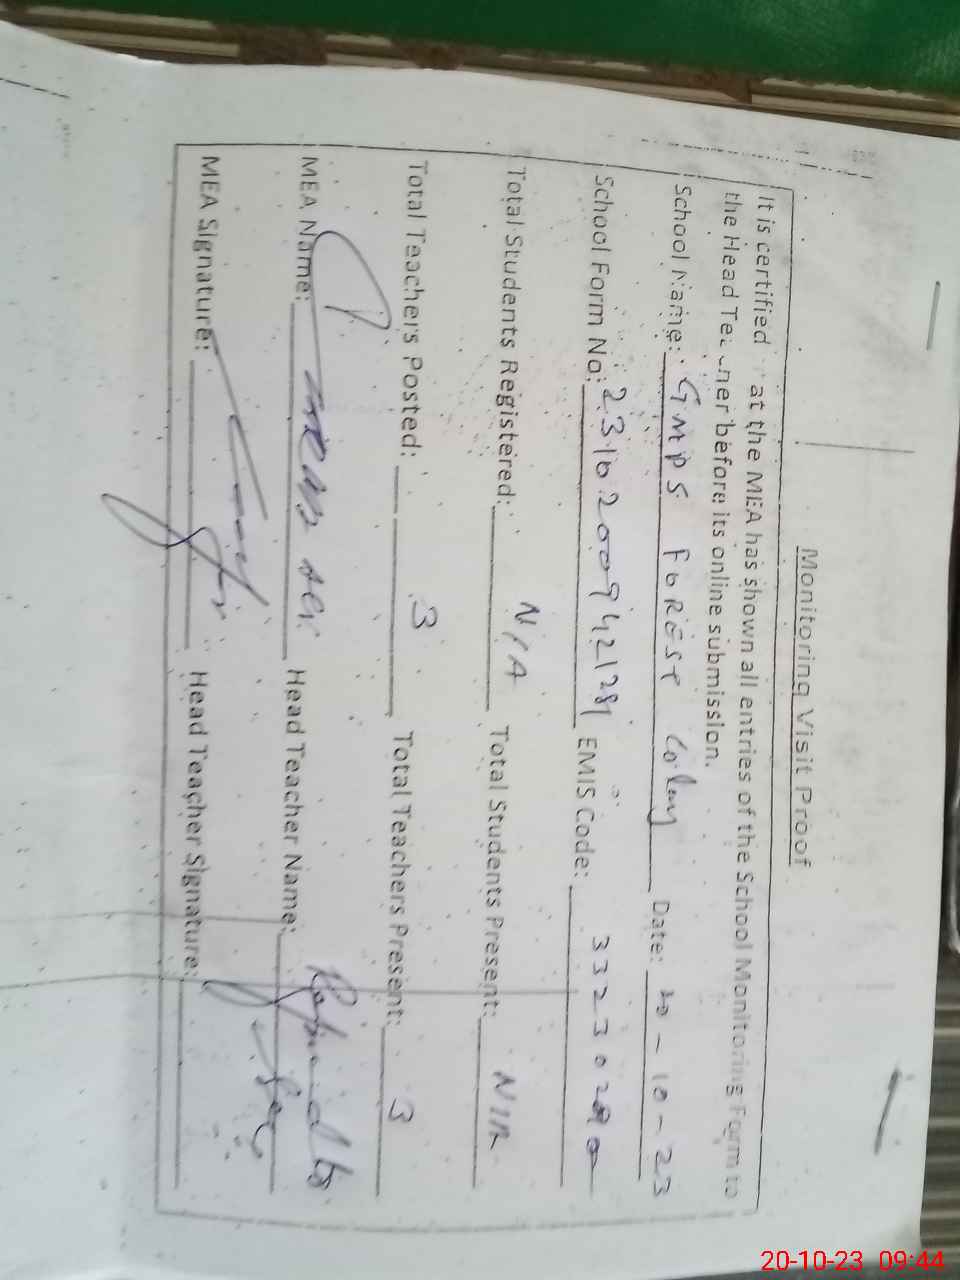 Monitoring Visit Proof
It is certified at the MEA has shown all entries of the School Monitoring Form to
the Head Teacher before its online submission.
School Name: GMPS FOREST Colony Date: 20-10-23
School Form No: EMIS Code:
Total Students Registered: N/A Total Students Present:
Total Teachers Posted: 3 Total Teachers Present: 3
MEA Name: Head Teacher Name:
MEA Signature: Head Teacher Signature:
20-10-23 09:44